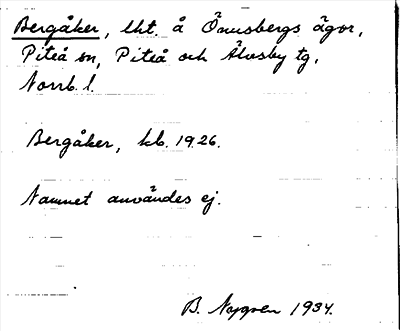 Bergåker, lht. å Önusbergs ägor,
Piteå sn, Piteå och Älvsby tg,
Norrb. l.
Bergåker, kb. 1926.
Namnet användes ej.
B. Nygren 1934.